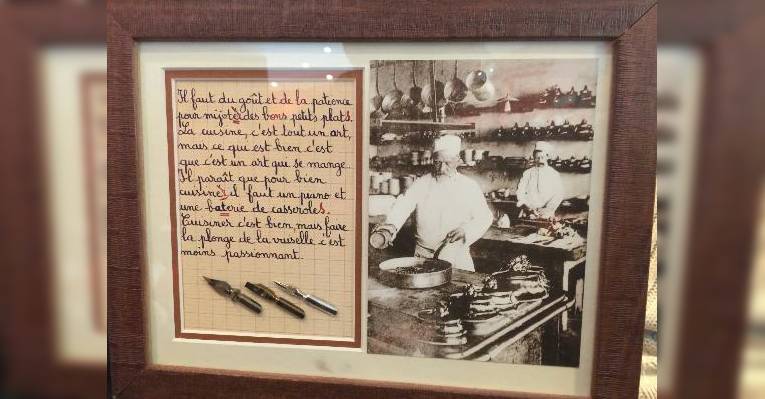 Il faut du goût et de la patience
pour mijoter des bons petits plats.
La cuisine, c'est tout un art,
mais ce qui est bien c'est
que c'est un art qui se mange.
Il paraît que pour bien
cuisiner il faut un piano et
une baterie de casseroles.
Cuisiner c'est bien, mais faire
la plonge de la vaiselle c'est
moins passionnant.